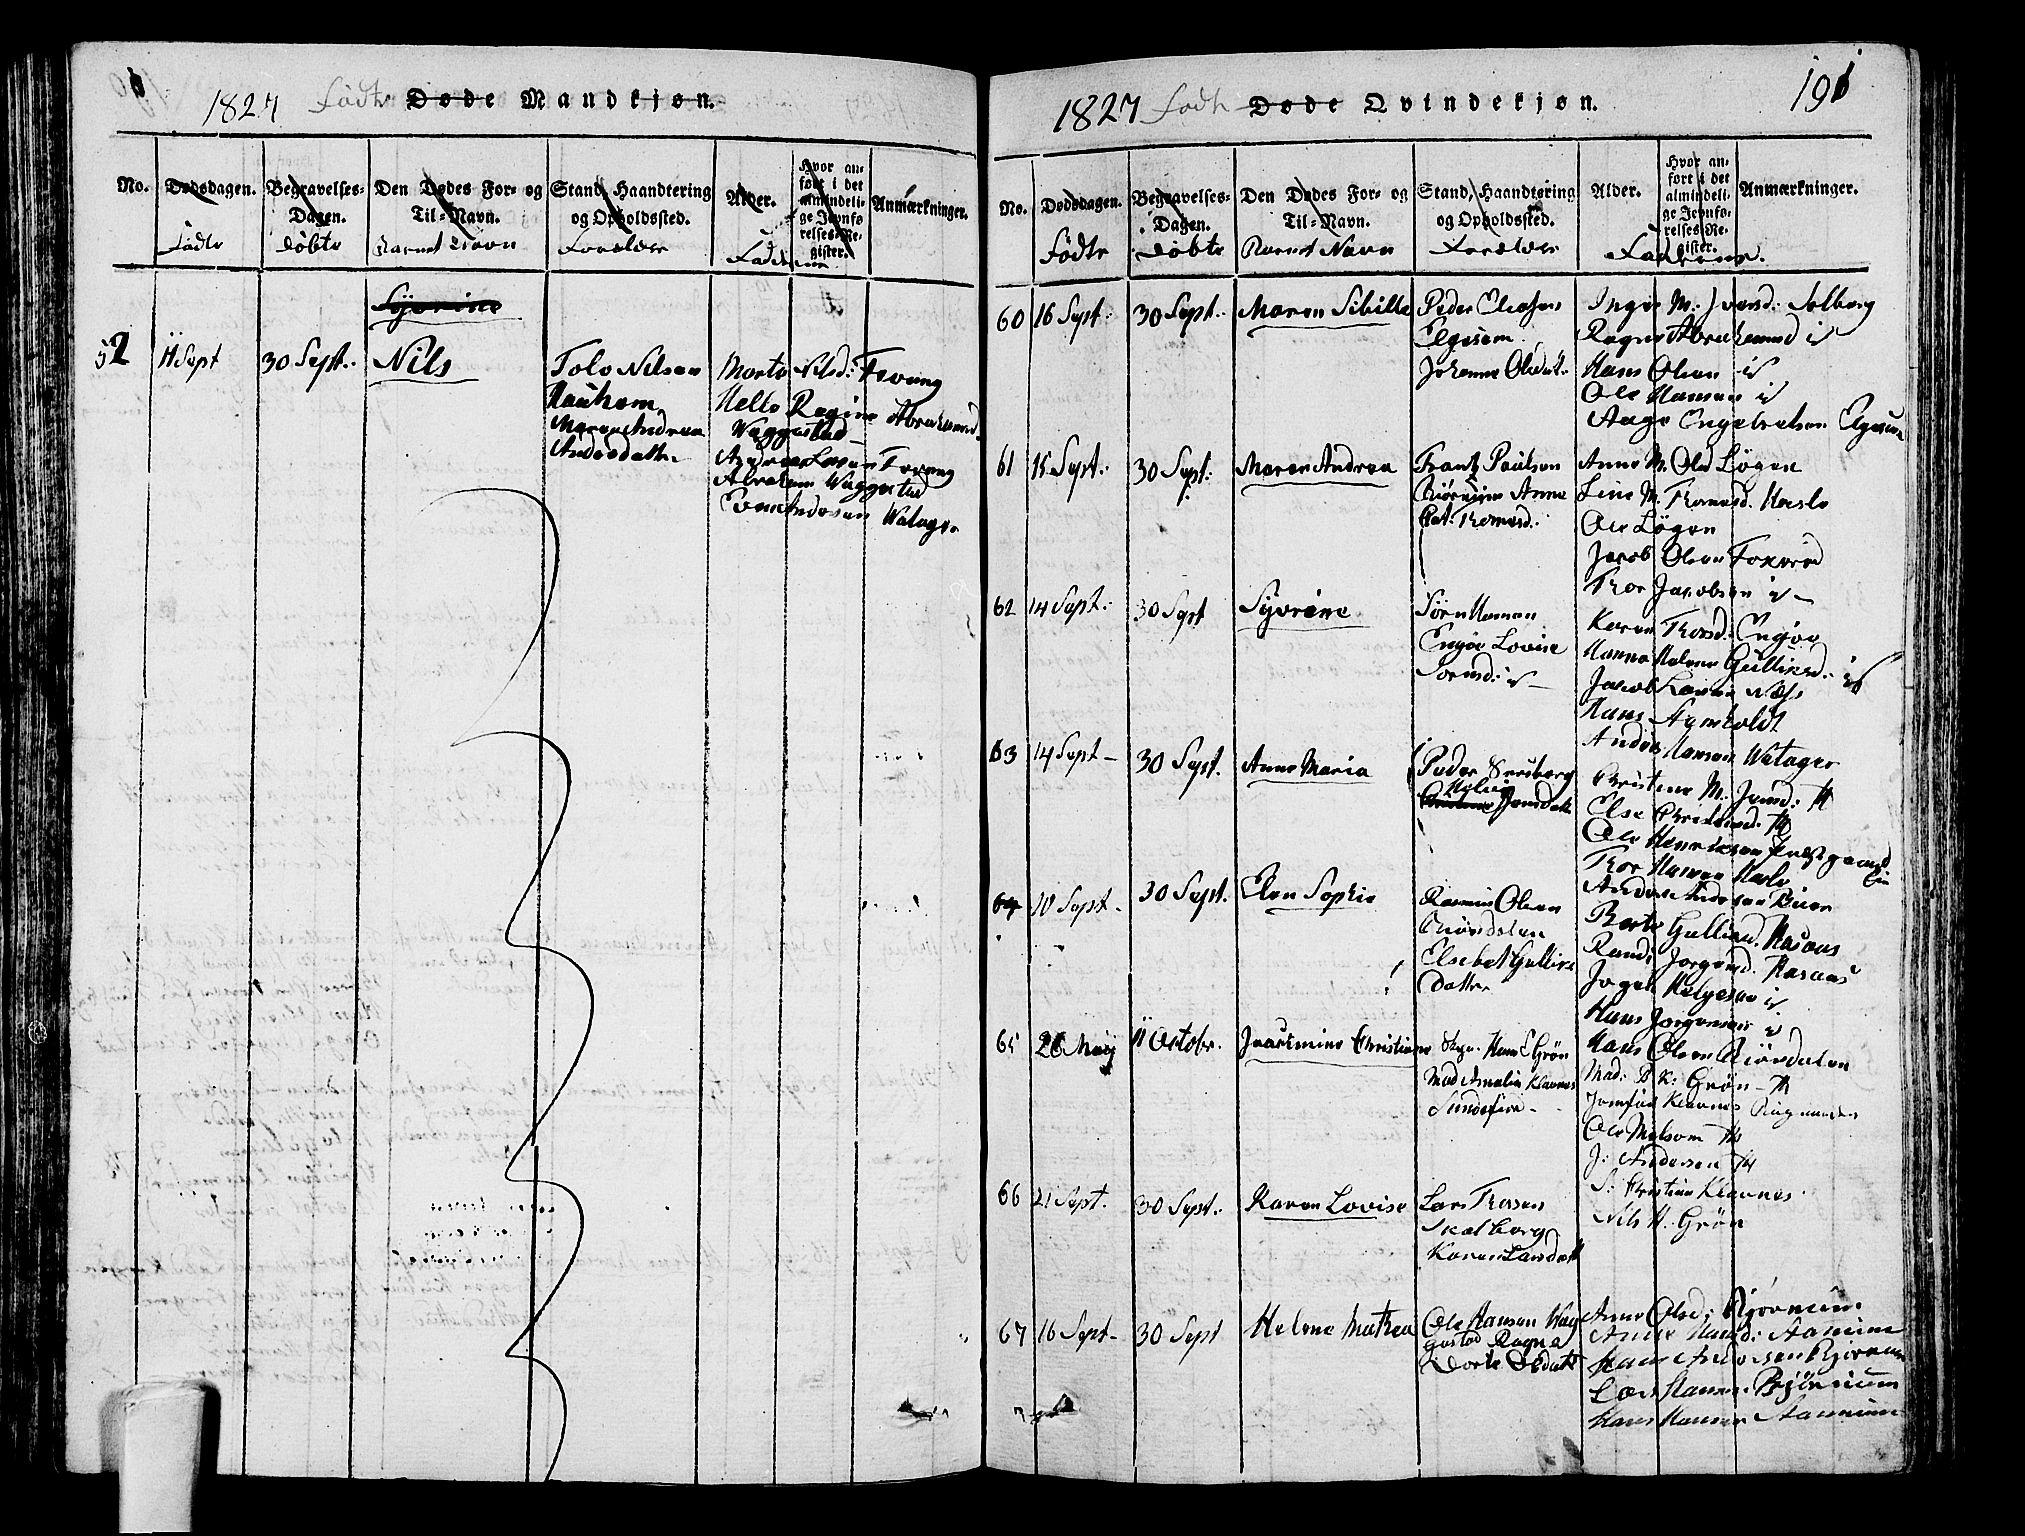 1827 Födte Døde Mandkjøn.
No.
Dødsdagen.
Födte
Begravelses-
Dagen.
Döbte
Den Dødes For- og
Til-Navn.
Barnets Navn
Stand, Haandtering
og Opholdssted.
Forældre
Alder.
Faddere
Hvor an-
ført i det
almindeli-
ge Jevnfø-
relses-Re-
gister.
Anmærkninger.
Syvrine
52
11 Sept
30 Sept.
Nils
Tolv Nilsen
Haughem
Maren Andrea
Andersdatter
Marte Nilsd: Fevang
Helle Regine Abrahamsd.
Waggestad
Andreas Larsen Fevang
Abraham Waggestad
Even Andersen Watager
1827 Födte Døde Qvindekjøn.
191
No.
Dødsdagen.
Födte
Begravelses-
Dagen.
Döbte
Den Dødes For- og
Til-Navn.
Barnets Navn
Stand, Haandtering
og Opholdssted.
Forældre
Alder.
Hvor an-
ført i det
almindeli-
ge Jevnfø-
relses-Re-
gister.
Anmærkninger.
Fadderne.
60
16 Sept.
30 Sept.
Maren Sibille
Peder Eliasen
Elgesem
Johanne Olsdat.
Inger M. Iversd. Solberg
Ragne Abrahamsd
Hans Olsen
Ole Hansen
Aage Engebretsen Elgesem
61
15 Sept.
30 Sept.
Maren Andrea
Frantz Paulsen
Anne
Cat. Thomasd.
Anne M. Olsd Lögen
Line M. Thomasd. Hasle
Ole Lögen
Jacob Olsen
Thor Jacobsen
62
14 Sept.
30 Sept
Syvrine
Sörn Hansen
Engöe Lovise
Sörnsd:
Karen Thorsd: Engöe
Hanna Malene Gullicksd.
Jacob Larsen Næss
Hans Aamholdt
Anders Hansen Watager
63
14 Sept
30 Sept.
Anne Maria
Peder
Jensdatt
Christine M. Jensd:
Else
Ole Henriksen Prestgaard
Thor Hansen Hasle
Anders Andersen
64
10 Sept
30 Sept.
Elen Sophie
Rasmus Olsen
Elsebet Gullics
datter
Berte Gullicsd. Raaaas
Randi Jorgensd. Raaaas
Helgesen
Hans Jorgensen
Hans Olsen
65
26 Maij
11 Octobr.
Jaackmine Christiane
Hans Grön
Mad Amalia Klavnes
Sandefior
Mad: D. K: Grön
Jomfrue Klavnes
Ole Melsom
J: Andersen
S: Christian Klavnes
Nils H. Grön
66
21 Sept.
30 Sept.
Karen Lovise
Lars Thorsen
Skalberg
Karen Larsdatt
67
16 Sept
30 Sept
Helene Mathea
Ole Hansen Wag
gestad Ragne
Dorte Olsdatt
Anne Olsd: Björnum
Anne Hansd: Aamum
Hans Andersen Björnum
Lars Hansen Björnum
Hans Hansen Aamum